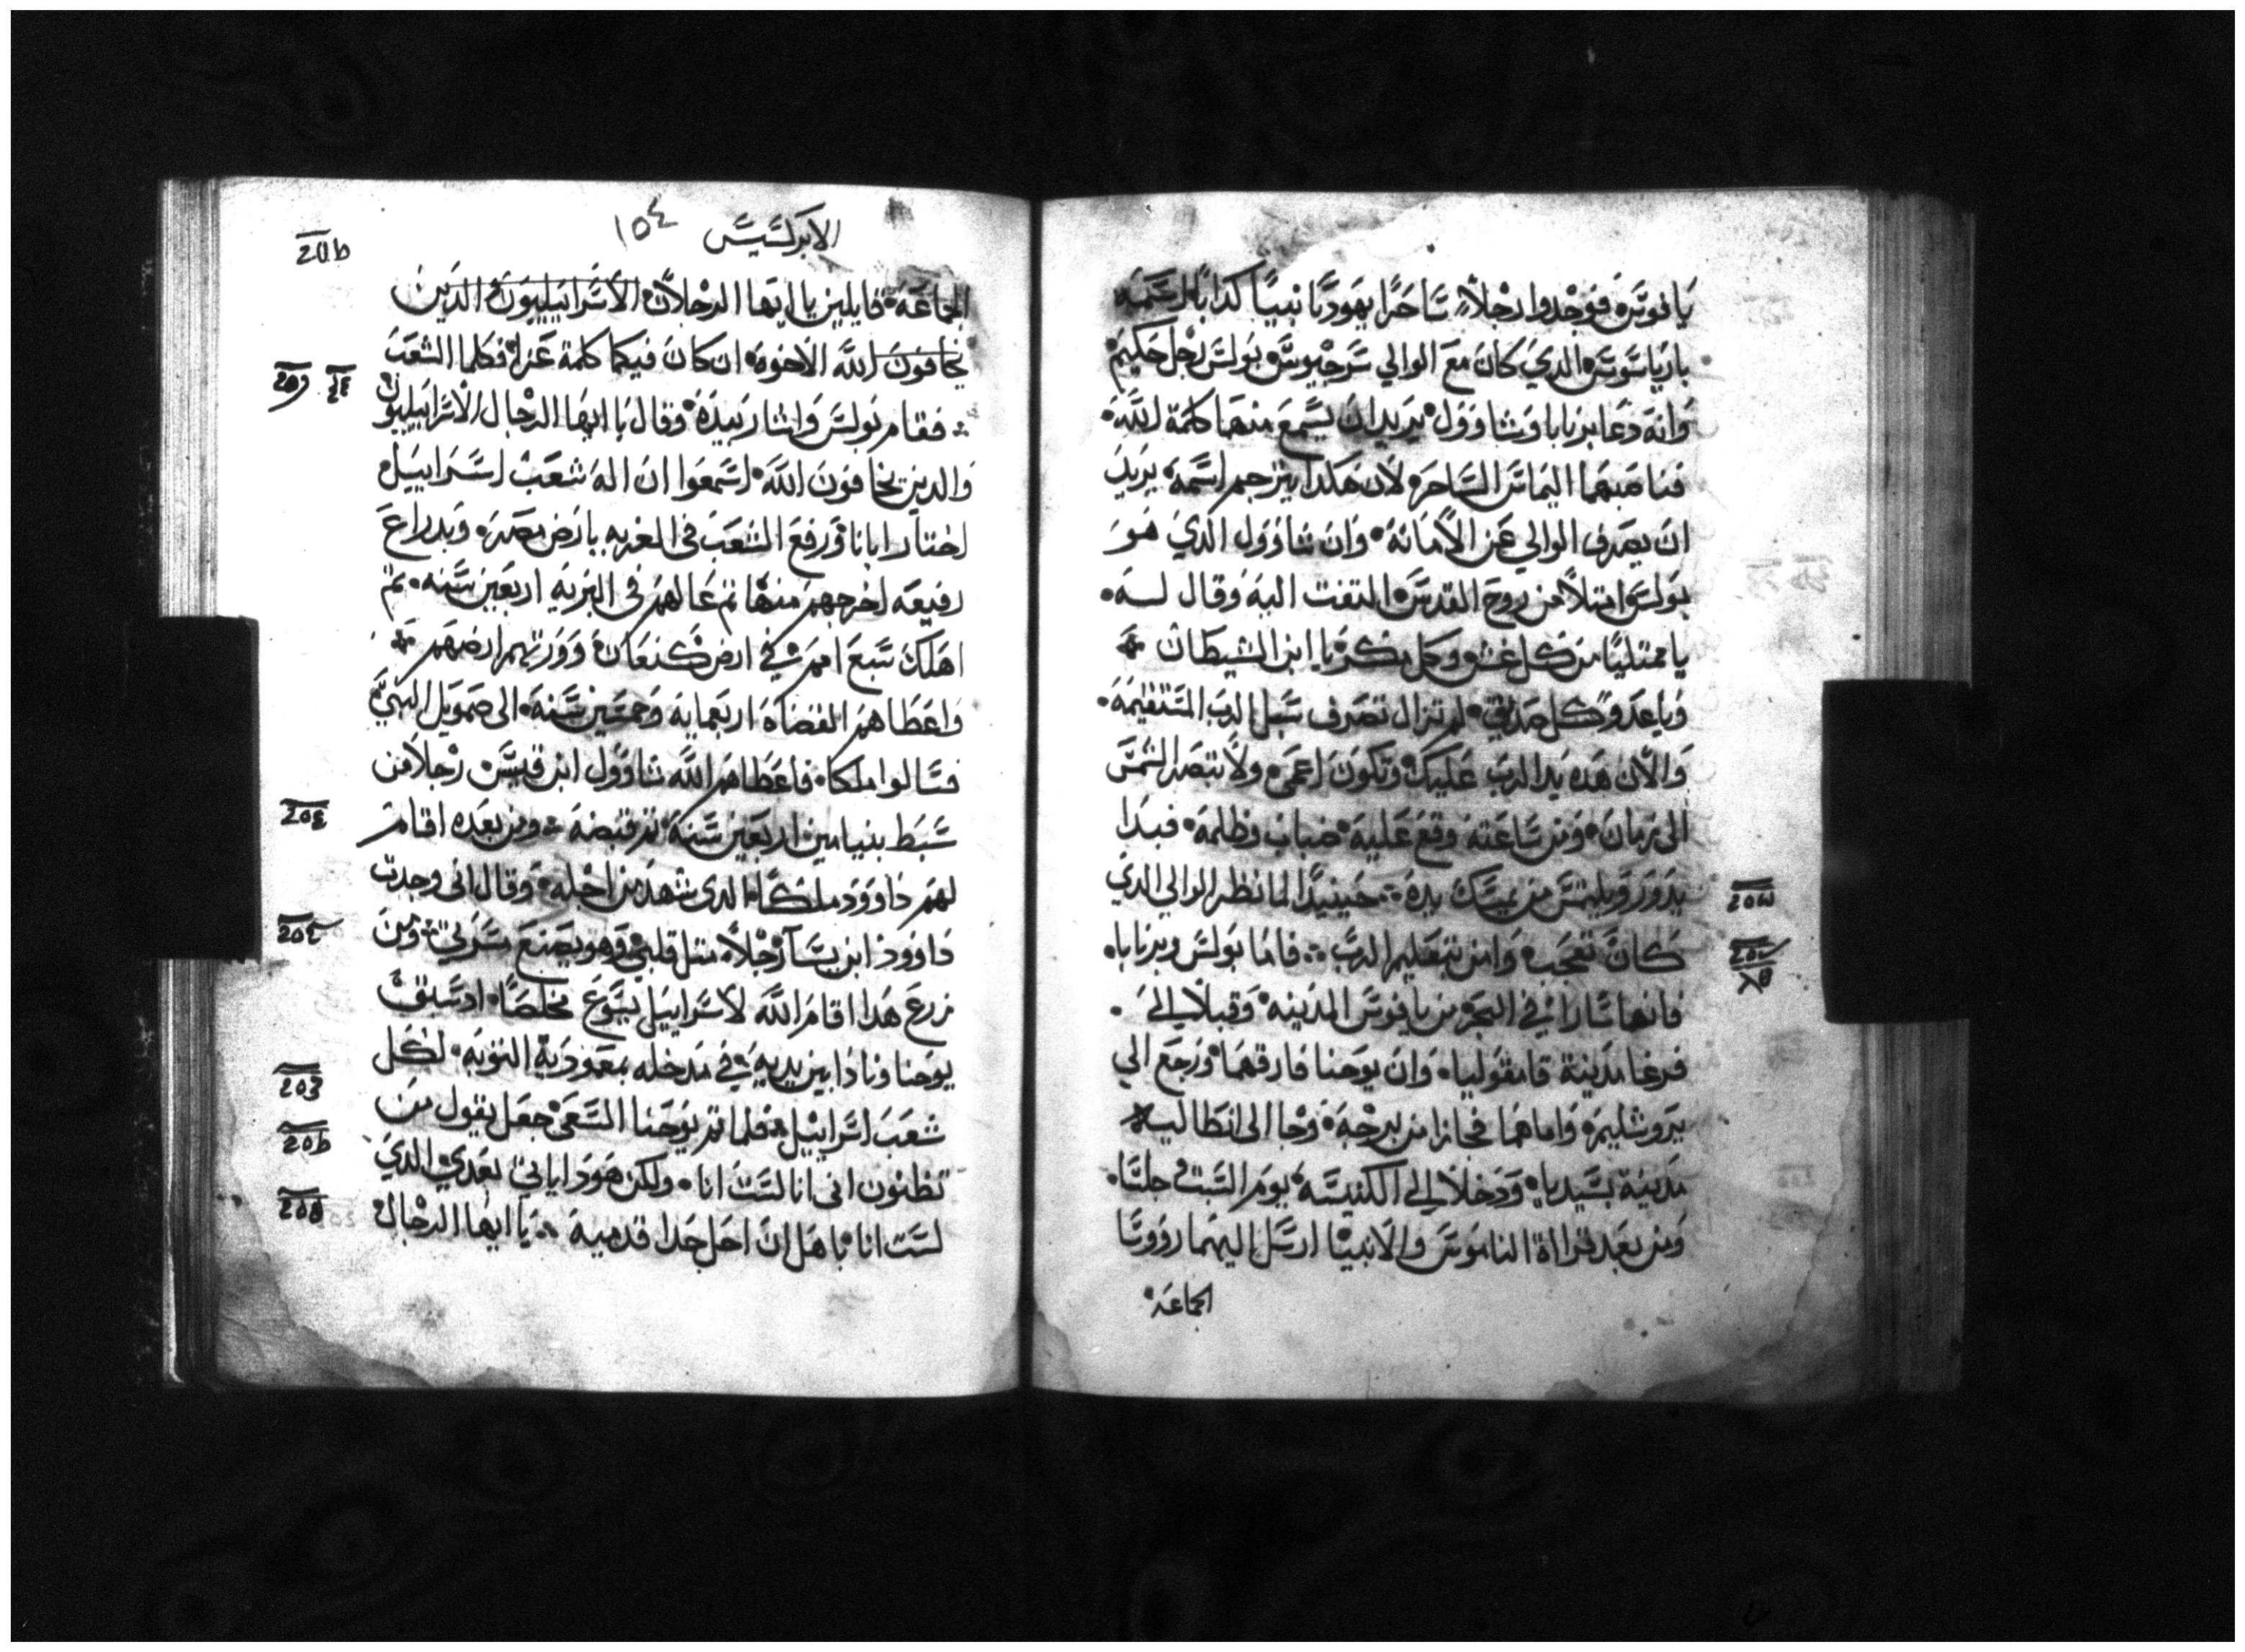 يافوس فوجدوا رجلاً ساحرًا يهوديًا نبيًا كدابًا اسمه
بارياسوس الدي كان مع الوالي سرجيوس بولس رجل حكيم
وانه دعا برنابا وشاوول يريد ان يسمع منهما كلمة الله
فناصبهما اليماس الساحر لان هكدا يترجم اسمه يريد
ان يصرف الوالي عن الامانة وان شاوول الدي هو
بولس امتلا من روح القدس التفت اليه وقال له
يا ممتليًا من كل غش وكل مكر يا ابن الشيطان
وياعدو كل صديق لم تزال تصرف سبل الرب المستقيمة
والان هده يد الرب عليك وتكون اعمى ولا تبصر الشمس
الى زمان ومن ساعته وقع عليه ضباب وظلمة فبدا
يدور ويلتمس من يمسك بيده حينيدًا لما نظر الوالي الدي
كان تعجب وامن بتعليم الرب فاما بولس وبرنابا
فانهما سارا في البحر من يافوس المدينه وقبلا الى
فرغا مدينة قامفوليا وان يوحنا فارقهما ورجع الي
يروشليم واما هما فجازا من برجه وجا الى انطاليه
مدينة بسيديا ودخلا الى الكنيسه يوم السبت جلسا
ومن بعد قراة الناموس والانبيا ارسل اليهما رووسا
الجماعه
ⲋⲟⲱ
الابركسيس ١٥٤
الجماعة قايلين يا ايها الرجلان الاسراييليون الدين
يخافون الله الاخوه ان كان فيكما كلمة عزا فكلما الشعب
فقام بولس واشار بيده وقال يا ايها الرجال الاسراييليون
والدين يخافون الله اسمعوا ان اله شعب اسراييل
اختار ابانا ورفع الشعب في الغربه بارض مصر وبدراع
رفيعه اخرجهم منها تم عالهم في البريه اربعين سنه تم
اهلك سبع امم في ارض كنعان وورتهم ارضهم
واعطاهم القضاه اربعمايه وخمسين سنة الى صمويل النبي
فسالوا ملكا فاعطاهم الله شاوول ابن قيس رجلا من
سبط بنيامين اربعين سنة تم قبضه ومن بعده اقام
لهم داوود ملكًا الدى شهد من اجله وقال اني وجدت
داوود ابن يسا رجلاً متل قلبي وهو يصنع مسرتي ومن
زرع هدا اقام الله لاسراييل يسوع مخلصًا ادسبق
يوحنا ونادا بين يديه في مدخله بمعمودية التوبه لكل
شعب اسراييل فلما تم يوحنا السعي جعل يقول من
تظنون انى انا لست انا ولكن هودا ياتي بعدي الدي
لست انا باهل ان احل حدا قدميه يا ايها الرجال